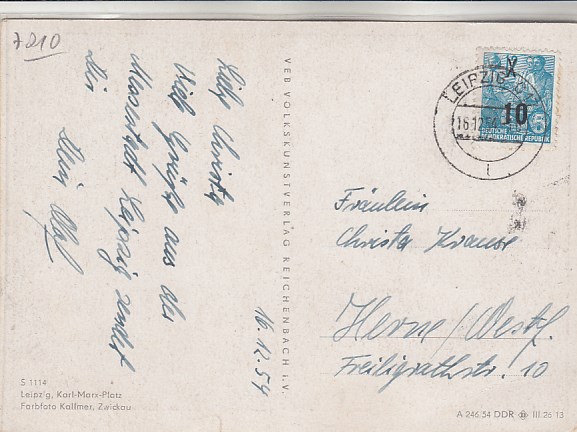 7210
Liebe Christa
Viele Grüße aus der
Messestadt Leipzig sendet
Dir
Dein
16.12.54
VEB VOLKSKUNSTVERLAG REICHENBACH I.V.
LEIPZIG
16.12.54
10
5
DEUTSCHE
DEMOKRATISCHE REPUBLIK
Fräulein
Christa Krause
Herne/Westf.
Freiligrathstr. 10
S 1114
Leipzig, Karl-Marx-Platz
Farbfoto Kallmer, Zwickau
A 246/54 DDR III 26 13